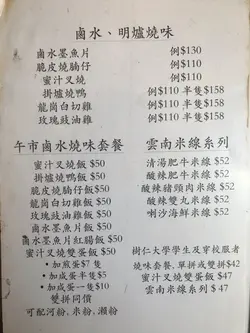 鹵水、明爐燒味
鹵水墨魚片 例$130
脆皮燒腩仔 例$110
蜜汁叉燒 例$110
掛爐燒鴨 例$110 半隻$158
龍崗白切雞 例$110 半隻$158
玫瑰豉油雞 例$110 半隻$158
午市鹵水燒味套餐
蜜汁叉燒飯 $50
掛爐燒鴨飯 $50
脆皮燒腩仔飯 $50
龍崗白切雞飯 $50
玫瑰豉油雞飯 $50
鹵水墨魚片飯 $50
鹵水墨魚片紅腸飯 $50
蜜汁叉燒雙蛋飯 $50
• 加煎蛋$7 隻
• 加咸蛋半隻$5
• 加咸蛋一隻$10
雙拼同價
可配河粉、米粉、瀨粉
雲南米線系列
清湯肥牛米線 $52
酸辣肥牛米線 $52
酸辣豬頸肉米線 $52
酸辣雙丸米線 $52
喇沙海鮮米線 $52
樹仁大學學生及穿校服者
燒味套餐,單拼或雙拼$42
蜜汁叉燒雙蛋飯 $47
雲南米線系列 $47